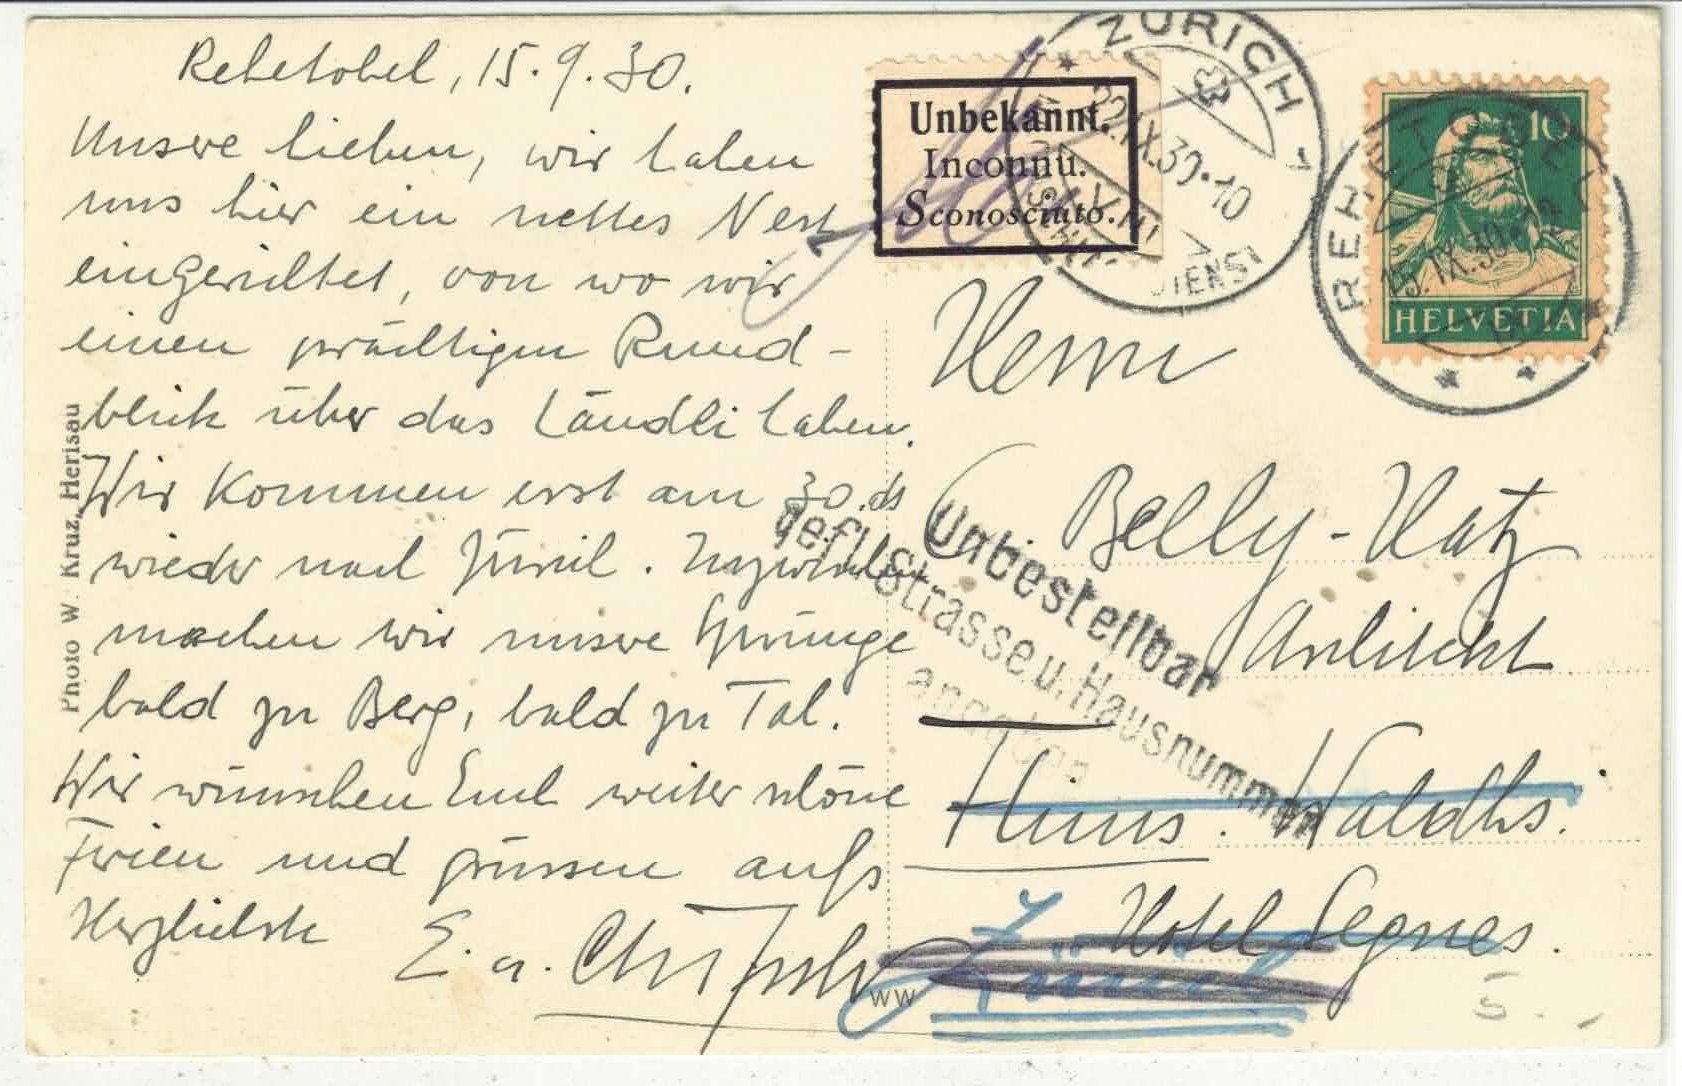 Rehetobel, 15. 9. 30.
Unsere lieben, wir haben
uns hier ein nettes Nest
eingerichtet, von wo wir
einen prächtigen Rund-
blick über das Ländli haben.
Wir kommen erst am 30. ds
wieder nach Zürich. Inzwischen
machen wir unsere Sprünge
bald zu Berg, bald zu Tal.
Wir wünschen Euch weiter schöne
Ferien und grüssen aufs
Herzlichste
E. u.
Photo W. Kruz, Herisau
Unbekannt.
Inconnu.
Sconosciuto.
ZÜRICH 1
22.IX.30-10
DIENST
REHETOBEL
15.IX.30
10
HELVETIA
Herrn
C. Belly-Hatz
Architekt
Flims. Waldhs.
Hotel Segnes.
Zürich
Unbestellbar
gefl. Strasse u. Hausnummer
angeben
WW
5